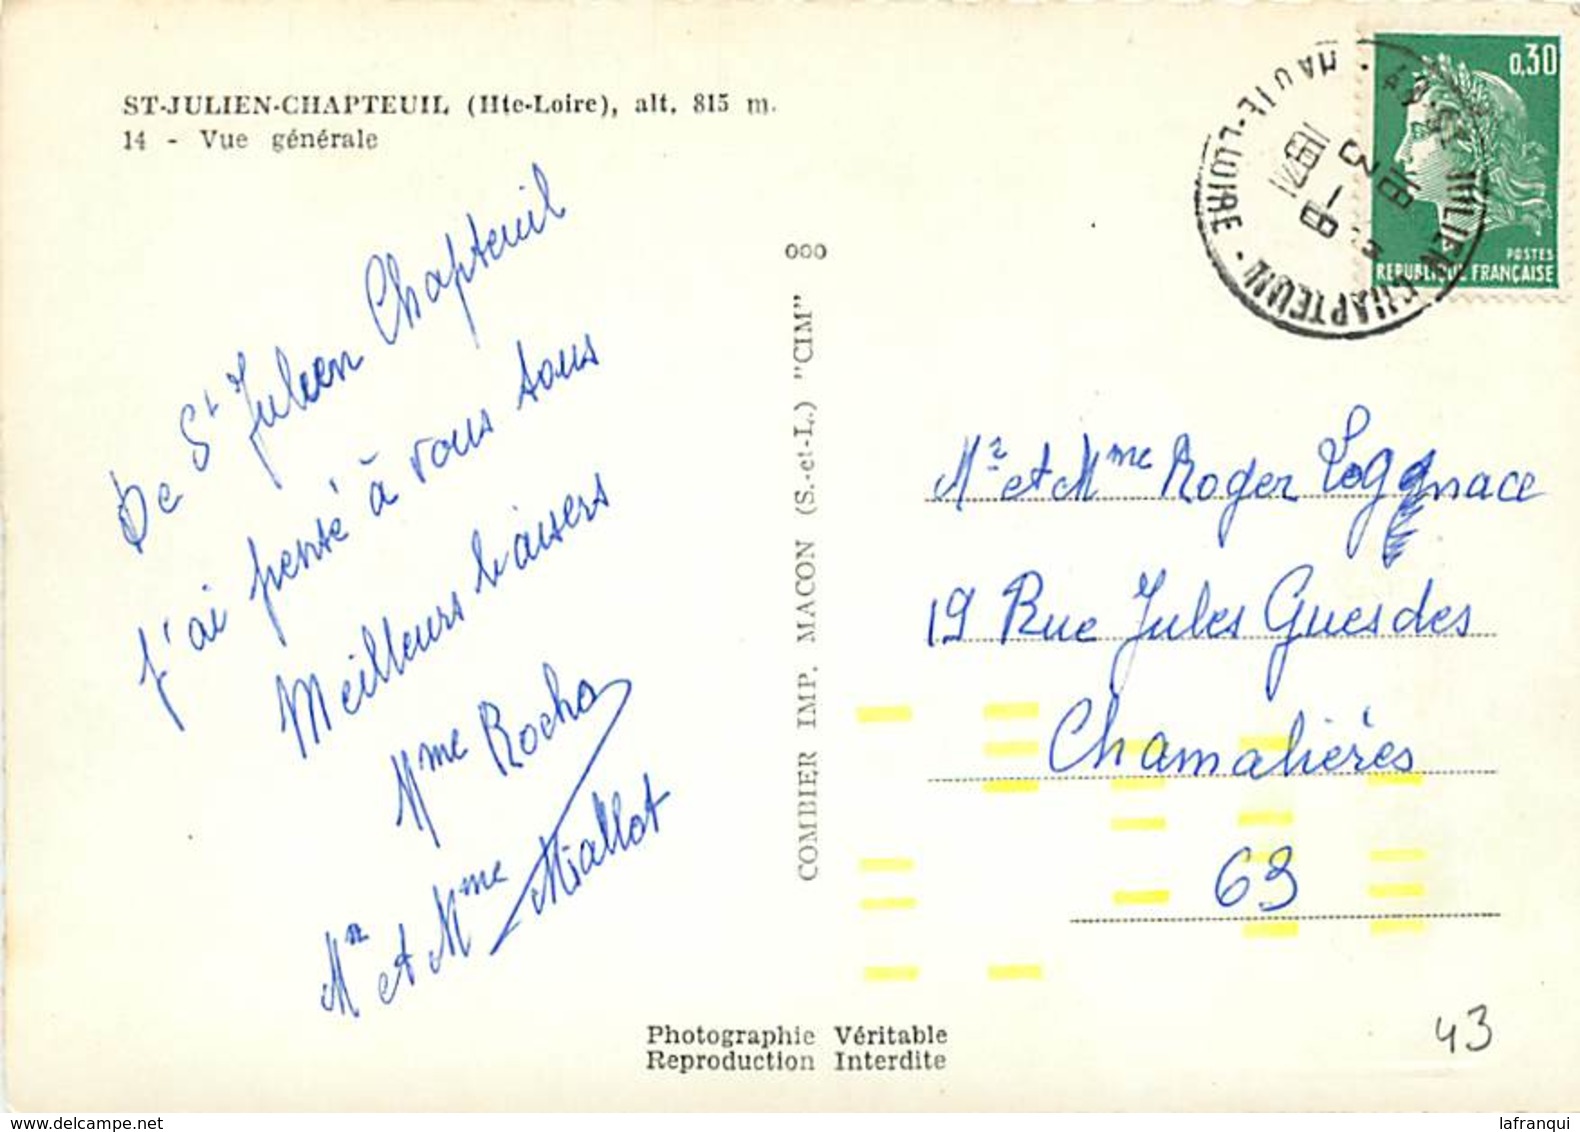 ST-JULIEN-CHAPTEUIL (Hte-Loire), alt. 815 m.
14 - Vue générale
De St Julien Chapteuil
j'ai pensé à vous tous
Meilleurs baisers
Mme Rocha
Mr et Mme Miallot
000
COMBIER IMP. MACON (S.-et-L.) "CIM"
Photographie Véritable
Reproduction Interdite
0,30
POSTES
REPUBLIQUE FRANÇAISE
JULIEN-CHAPTEUIL
HAUTE-LOIRE
1971
Mr et Mme Roger
19 Rue Jules Guesdes
Chamalières
63
43
lafranqui